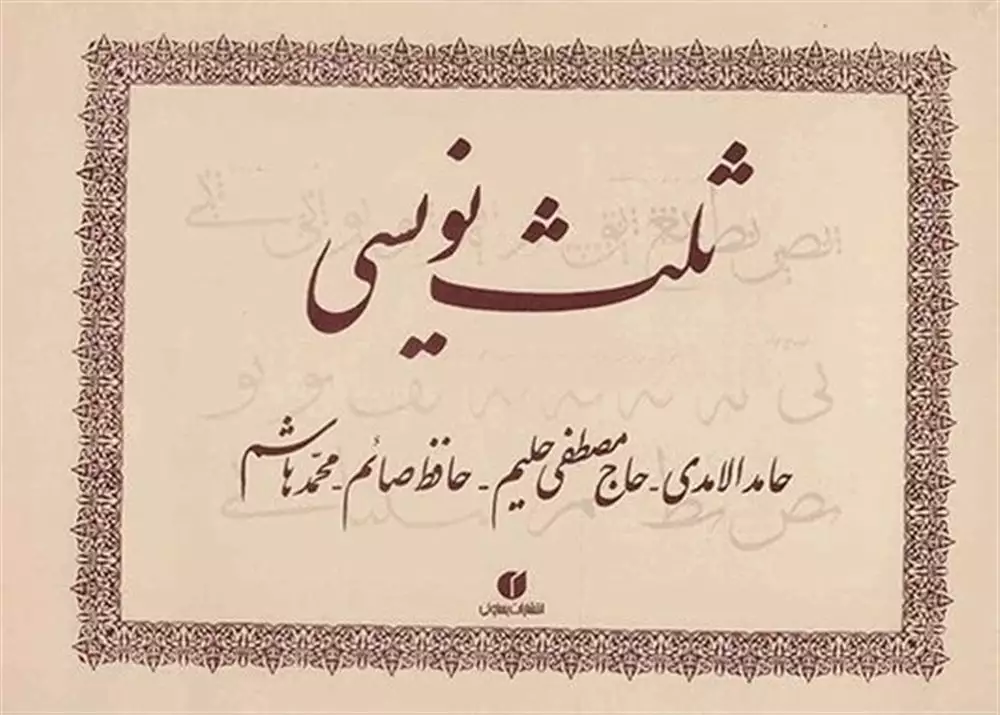 ثلث نویسی
حامد الامدی - حاج مصطفی حلیم - حافظ صائم - محمّد هاشم
انتشارات یساولی